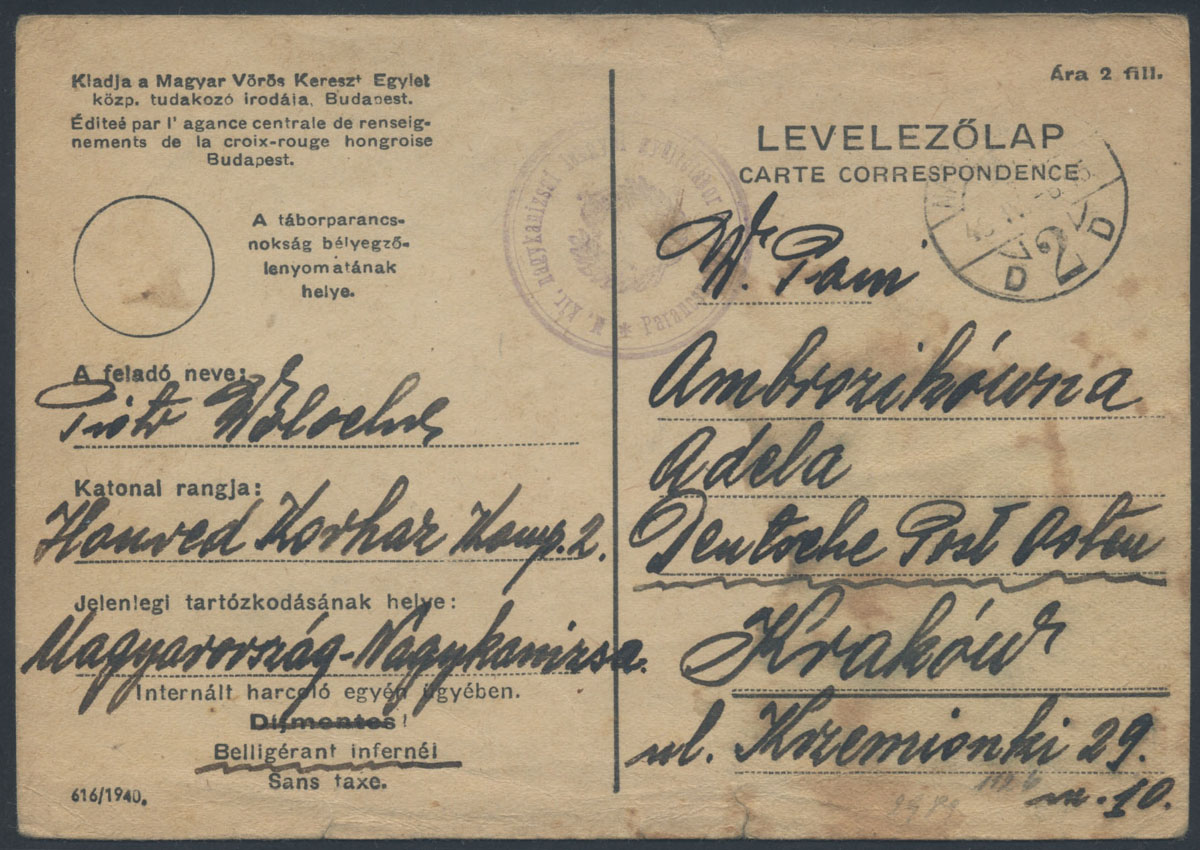 Kiadja a Magyar Vörös Kereszt Egylet
közp. tudakozó irodája, Budapest.
Éditeé par l' agance centrale de renseig-
nements de la croix-rouge hongroise
Budapest.
A táborparancs-
nokság bélyegző-
lenyomatának
helye.
A feladó neve:
Piotr
Katonai rangja:
Honved Korhaz Komp. 2.
Jelenlegi tartózkodásának helye:
Magyarország-Nagykanizsa.
Internált harcoló egyén ügyében.
Díjmentes!
Belligérant infernéi
Sans taxe.
616/1940.
Nagykanizsai
Ára 2 fill.
LEVELEZŐLAP
CARTE CORRESPONDENCE
D 2 D
W. Pani
Ambrozikówna
Adela
Deutsche Post Osten
Kraków
ul. Krzemionki 29.
m. 10.